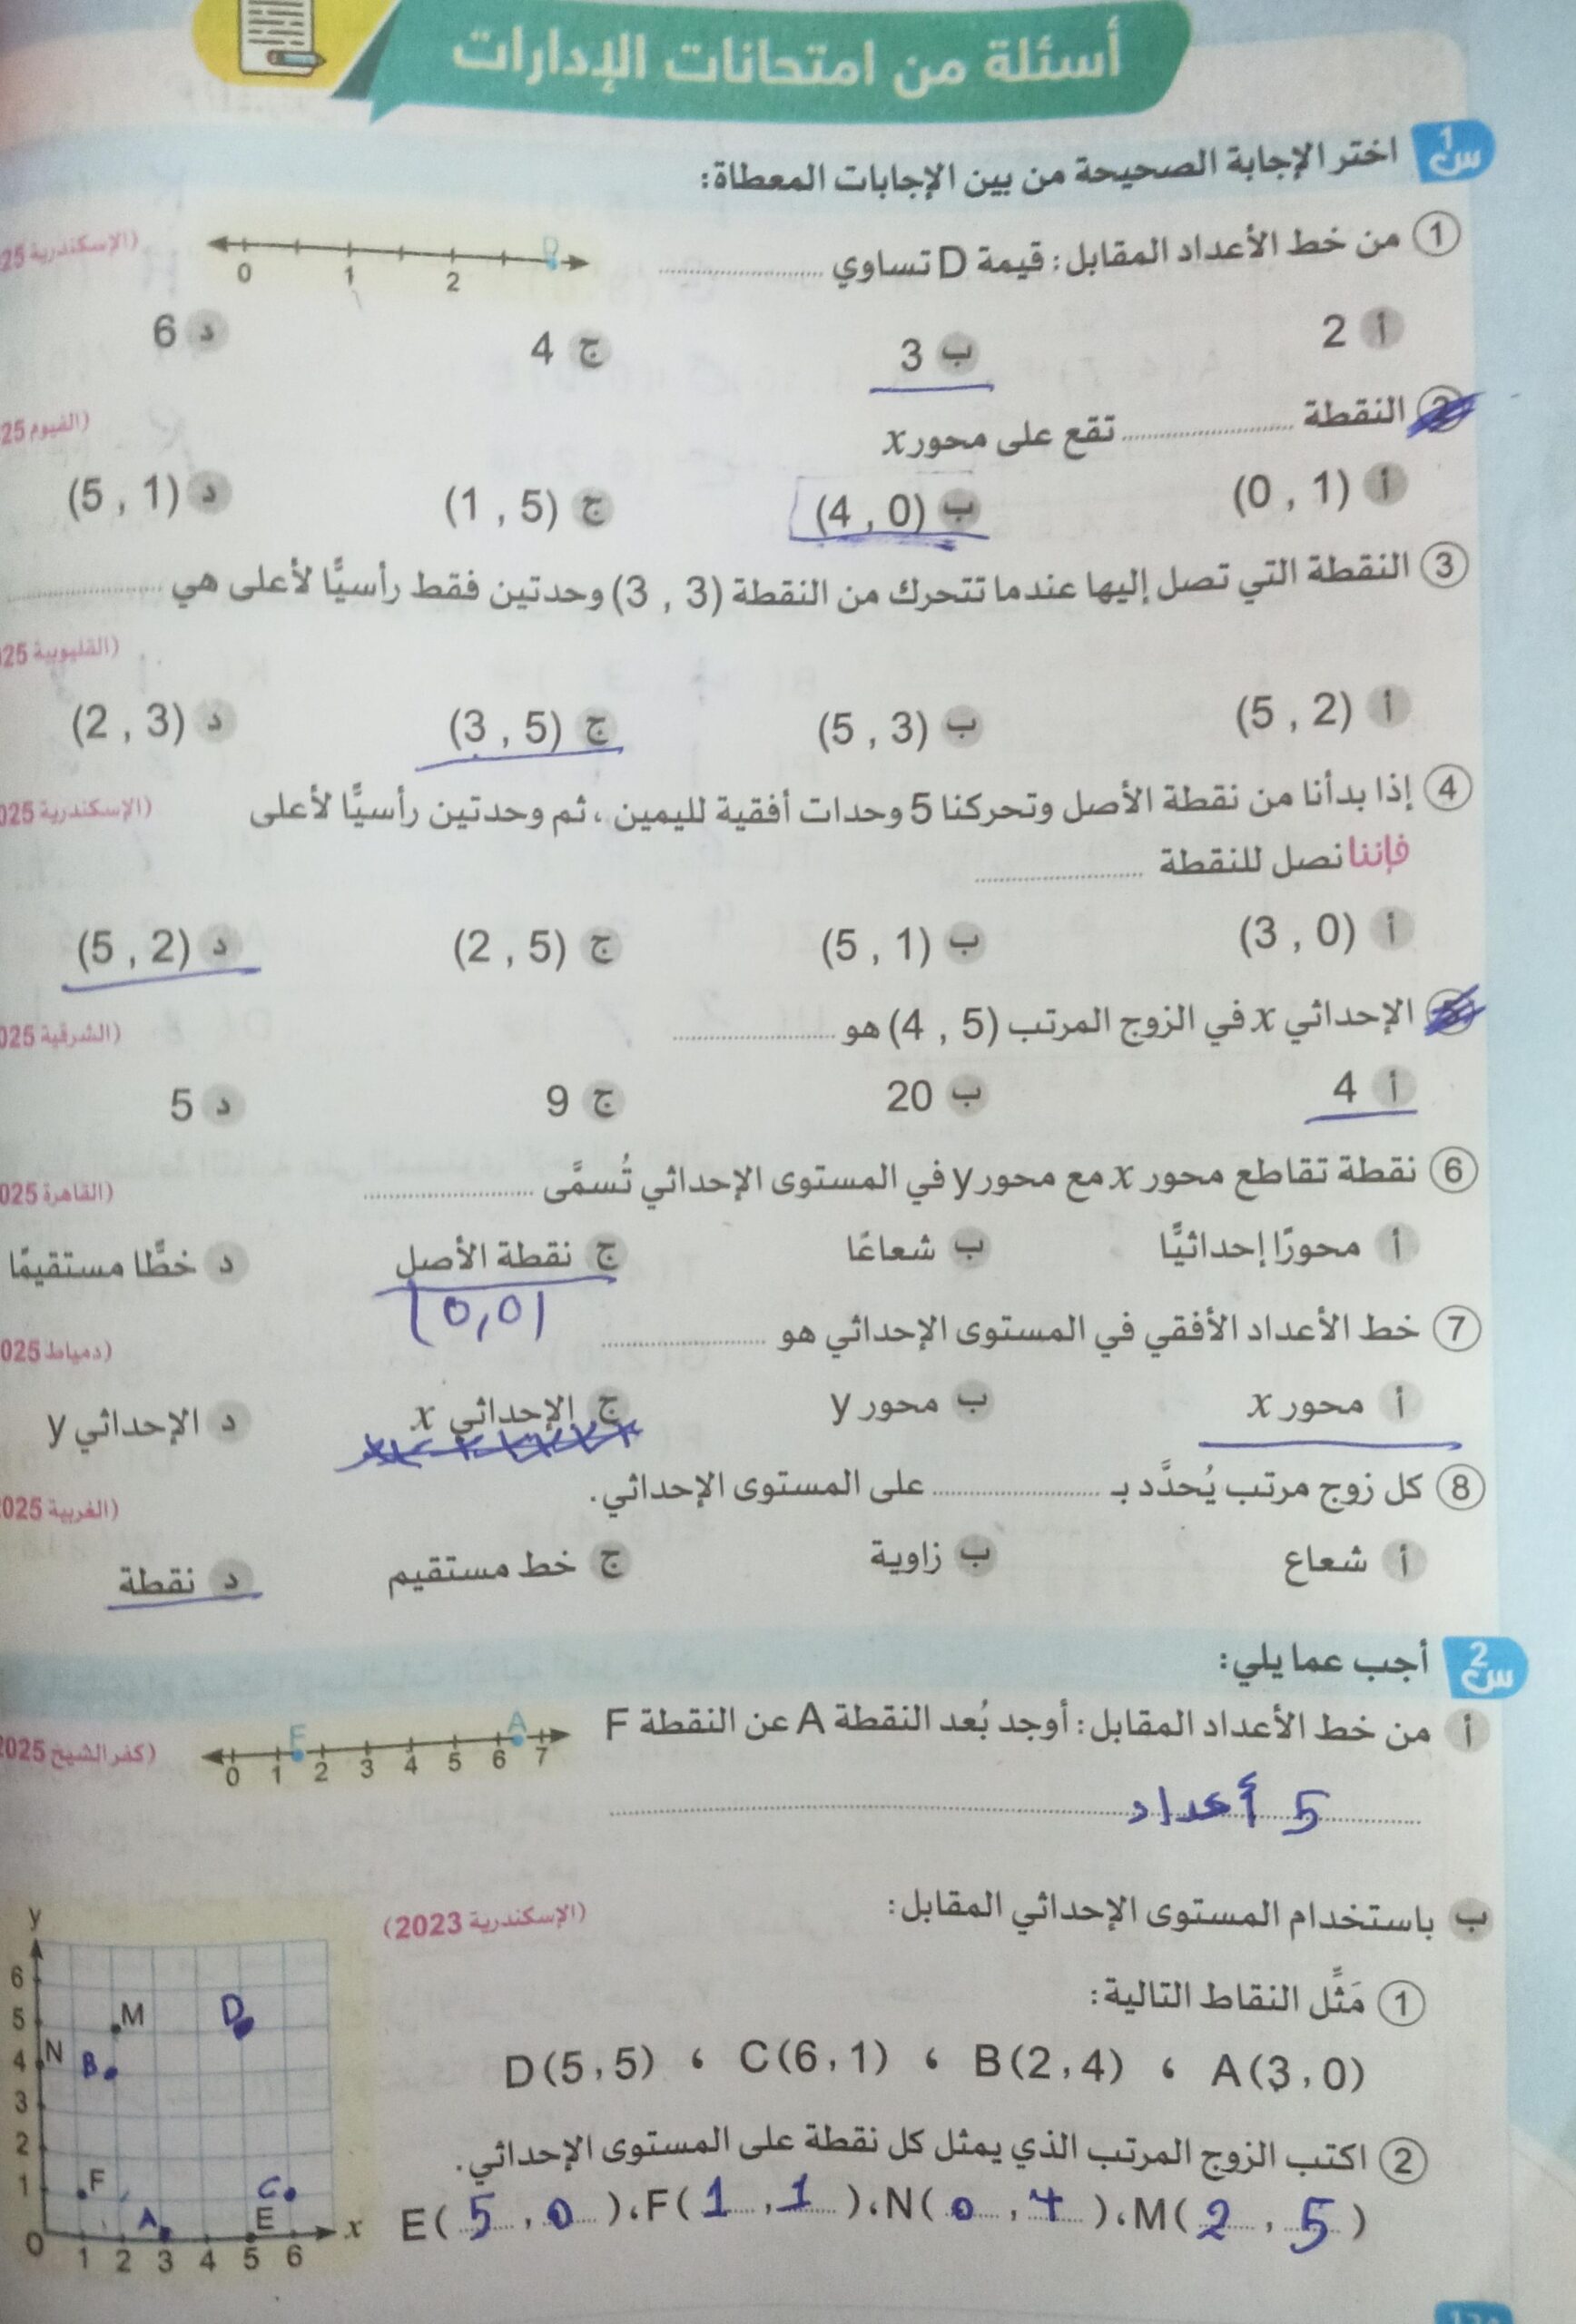 أسئلة من امتحانات الإدارات
س1 اختر الإجابة الصحيحة من بين الإجابات المعطاة:
1 من خط الأعداد المقابل: قيمة D تساوي ........ (الإسكندرية 25
0 1 2 D
أ 2 ب 3 ج 4 د 6
2 النقطة ........ تقع على محور x (الفيوم 25
أ (0 , 1) ب (4 , 0) ج (1 , 5) د (5 , 1)
3 النقطة التي تصل إليها عندما تتحرك من النقطة (3 , 3) وحدتين فقط رأسيًّا لأعلى هي ........
(القليوبية 25
أ (5 , 2) ب (5 , 3) ج (3 , 5) د (2 , 3)
4 إذا بدأنا من نقطة الأصل وتحركنا 5 وحدات أفقية لليمين، ثم وحدتين رأسيًّا لأعلى (الإسكندرية 025
فإننا نصل للنقطة ........
أ (3 , 0) ب (5 , 1) ج (2 , 5) د (5 , 2)
5 الإحداثي x في الزوج المرتب (4 , 5) هو ........ (الشرقية 025
أ 4 ب 20 ج 9 د 5
6 نقطة تقاطع محور x مع محور y في المستوى الإحداثي تُسمَّى ........ (القاهرة 025
أ محورًا إحداثيًّا ب شعاعًا ج نقطة الأصل د خطًّا مستقيمًا
(0,0)
7 خط الأعداد الأفقي في المستوى الإحداثي هو ........ (دمياط 025
أ محور x ب محور y ج الإحداثي x د الإحداثي y
8 كل زوج مرتب يُحدَّد بـ ........ على المستوى الإحداثي. (الغربية 025
أ شعاع ب زاوية ج خط مستقيم د نقطة
س2 أجب عما يلي:
أ من خط الأعداد المقابل: أوجد بُعد النقطة A عن النقطة F (كفر الشيخ 2025
F A
0 1 2 3 4 5 6 7
5 أعداد
ب باستخدام المستوى الإحداثي المقابل: (الإسكندرية 2023)
1 مَثِّل النقاط التالية:
A(3 , 0) ، B(2 , 4) ، C(6 , 1) ، D(5 , 5)
2 اكتب الزوج المرتب الذي يمثل كل نقطة على المستوى الإحداثي.
E( 5 , 0 )، F( 1 , 1 )، N( 0 , 4 )، M( 2 , 5 )
y
6
5 M D
4 N B
3
2
1 F C
A E
0 1 2 3 4 5 6 x